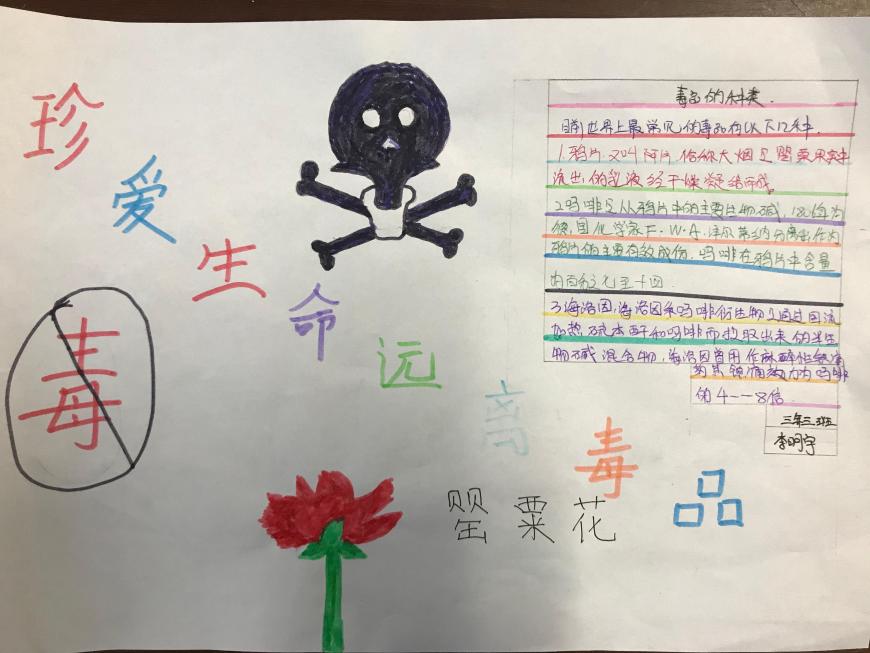 珍爱生命远离毒品
毒
罂粟花
毒品的种类.
目前世界上最常见的毒品有以下几种.
1.鸦片.又叫阿片.俗称大烟是罂粟果实中
流出的乳液经干燥凝结而成
2吗啡是从鸦片中的主要生物碱,
德国化学家F·W·A·泽尔蒂纳分离出作为
鸦片的主要有效成份.吗啡在鸦片中含量
为百分之七至十四
3海洛因:海洛因系吗啡衍生物
加热 和吗啡而提取出来的半生
物碱混合物,海洛因曾用作麻醉性镇痛
药其镇痛效力为吗啡
的4--8倍
三年三班
李明宇